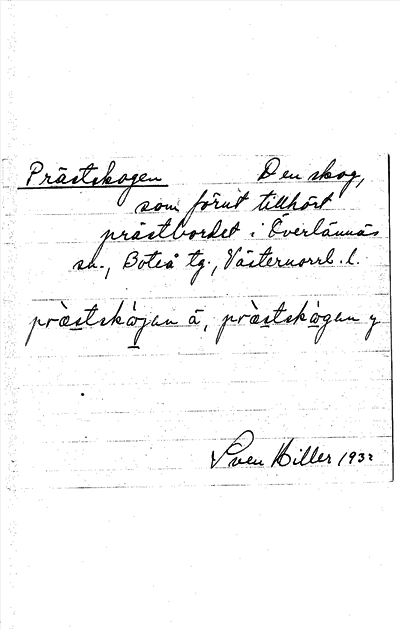 Prästskogen Den skog,
som förut tillhört
prästbordet i Överlännäs
sn., Boteå tg., Västernorrl. l.
præstskògen ä, præstskògen y
Sven Hiller 1932